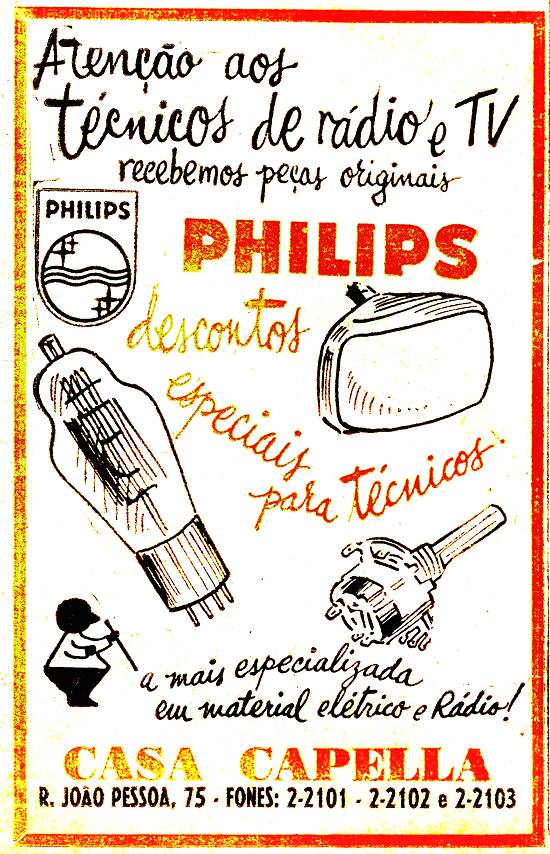 Atenção aos
técnicos de rádio e TV
recebemos peças originais
PHILIPS
PHILIPS
descontos
especiais
para técnicos.
a mais especializada
em material elétrico e Rádio!
CASA CAPELLA
R. JOÃO PESSOA, 75 - FONES: 2-2101 - 2-2102 e 2-2103